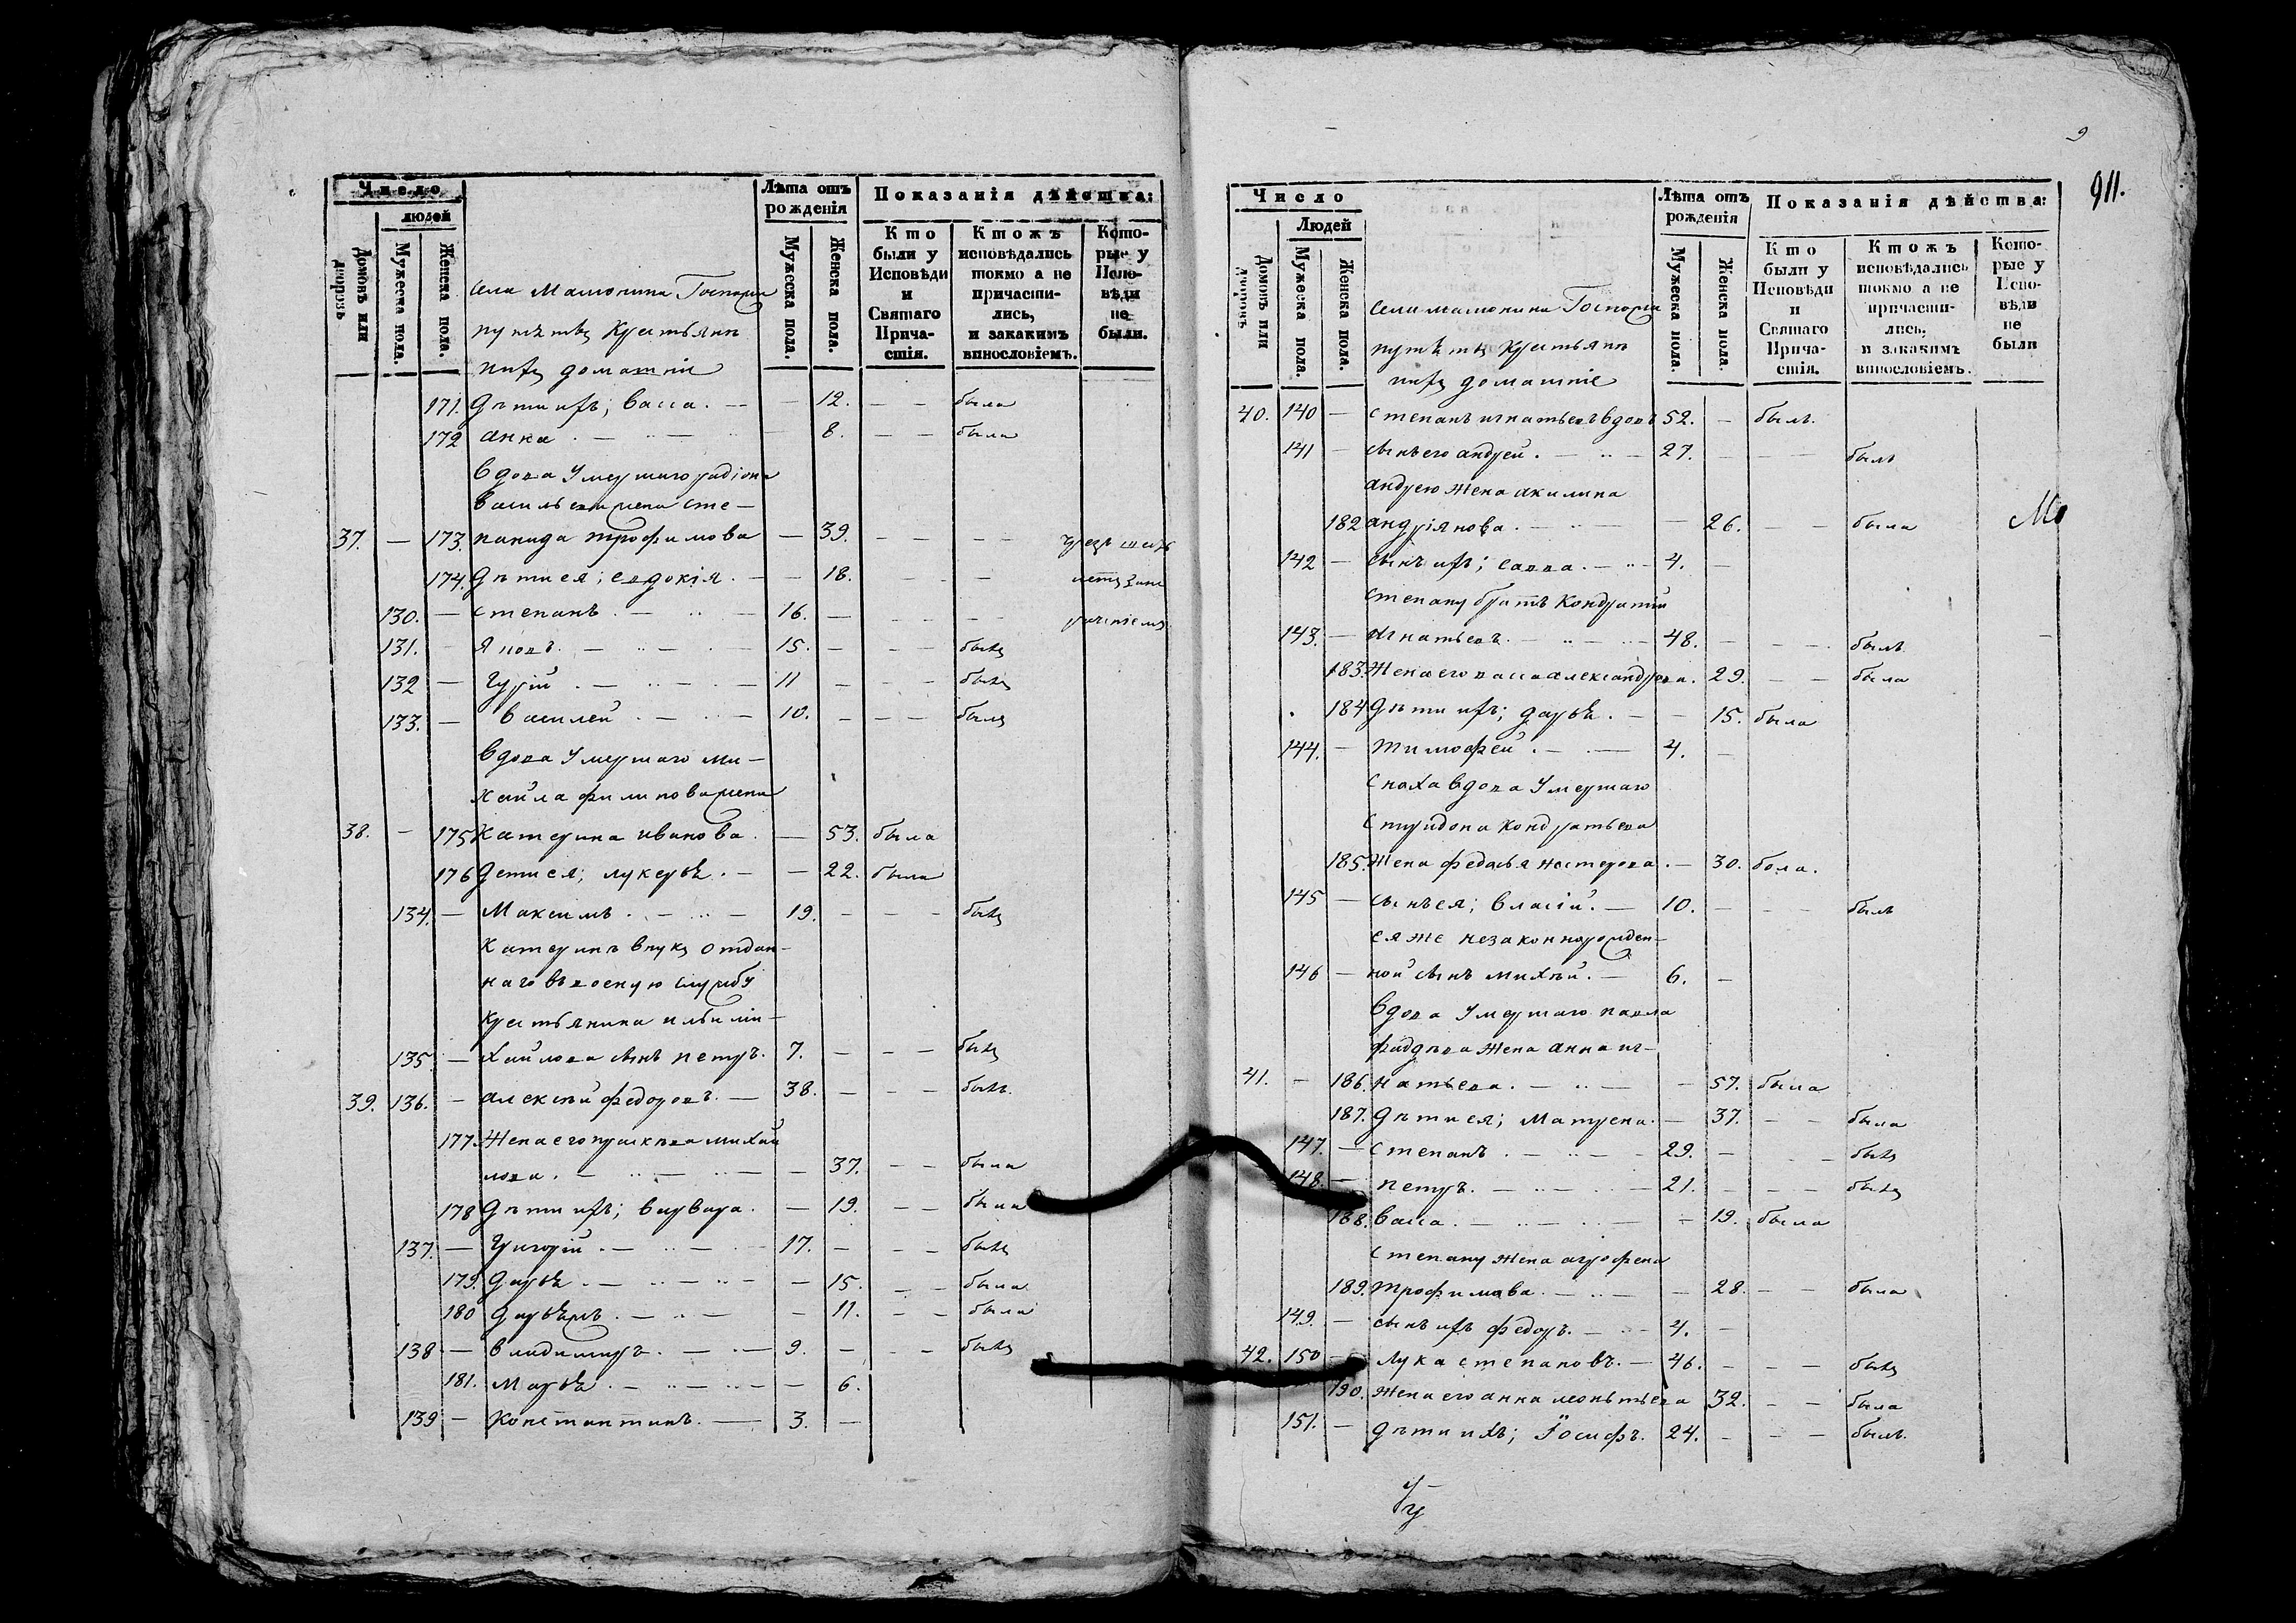 Число
людей
Домовъ или дворовъ
Мужеска пола.
Женска пола.
села Мамонина Господи
Крестьяне
домашніе
Лѣта отъ рожденія
Мужеска пола.
Женска пола.
Показанія дѣйства:
Кто были у Исповѣди и Святаго Прича-стія.
Ктожъ исповѣдались токмо а не причасти-лись, и закакимъ винословіемъ.
Кото-рые у Испо-вѣди не были.
171. Дѣти ихъ; васса. — — 12. — — была
172 анна — — 8. — — была
вдова Умершаго радіона
васильева жена сте-
37. — 173. панида трофимова — 39. — — —
174. Дѣти ея; евдокія. — — 18. —
130. — степанъ — 16. — — —
131. — Яковъ. — 15. — — — былъ
132 — Гурій — 11 — — — былъ
133. — василей — 10. — — — былъ
вдова Умершаго ми-
хаила филипова жена
38. — 175 катерина иванова. — 53. была
176 дети ея; лукерья. — — 22. была
134. — Максимъ. — 19. — — — былъ
катеринѣ внукъ отдан-
наго въ военную службу
крестьянина ильи ми-
135. — хайлова сынъ петръ. 7. — — — былъ
39. 136. — алексѣй федоровъ. — 38. — — — былъ.
177. Жена его прасковья михай
лова. — — 37. — — была
178 Дѣти ихъ; варвара. — 19. — — была
137. — Григорій. — 17. — — — былъ
179. Дарья. — — 15. — — была
180 — — 11. — — была
138 — владимиръ. — 9. — — — былъ
181. Марья. — — 6.
139 — Константинъ. — 3. —
9
911.
Число
Людей
Домовъ или дворовъ
Мужеска пола.
Женска пола.
села мамонина Господи
крестьяне
домашніе
Лѣта отъ рожденія
Мужеска пола.
Женска пола.
Показанія дѣйства:
Кто были у Исповѣди и Святаго Прича-стія.
Ктожъ исповѣдались токмо а не причасти-лись, и закакимъ винословіемъ.
Кото-рые у Испо-вѣди не были
40. 140 — степанъ игнатьевъ вдовъ 52. — былъ.
141 — сынъ его андрей. — 27. — — — былъ
андрею жена акилина
182 андріянова. — — 26. — — была
142 — сынъ ихъ; савва. — 4. —
степану братъ Кондратій
143. — игнатьевъ. — 48. — — — былъ
183. Жена его васса александрова. 29. — — была
184 Дѣти ихъ; дарья. — — 15. была
144. — тимофей. — 4. —
сноха вдова Умершаго
спиридона кондратьева
185. Жена федосья нестерова. — 30. бола.
145 — сынъ ея; власій. — 10. — — — былъ
ея же незаконнорожден-
146 — ной сынъ михѣй. — 6. —
вдова Умершаго павла
жена анна иг-
41. — 186. натьева. — — 57. была
187. Дѣти ея; матрена. — 37. — — была
147. — степанъ. — 29. — — — былъ
148. — петръ. — 21. — — — былъ
138. васса. — — 19. была
степану жена агрофена
189. трофимова. — — 28. — — была
149. — сынъ ихъ федоръ. — 4. —
42. 150 — лука степановъ. — 46. — — — былъ
190. Жена его анна леонтьева 32. — — была
151. — Дѣти ихъ; Іосифъ. 24. — — — былъ.